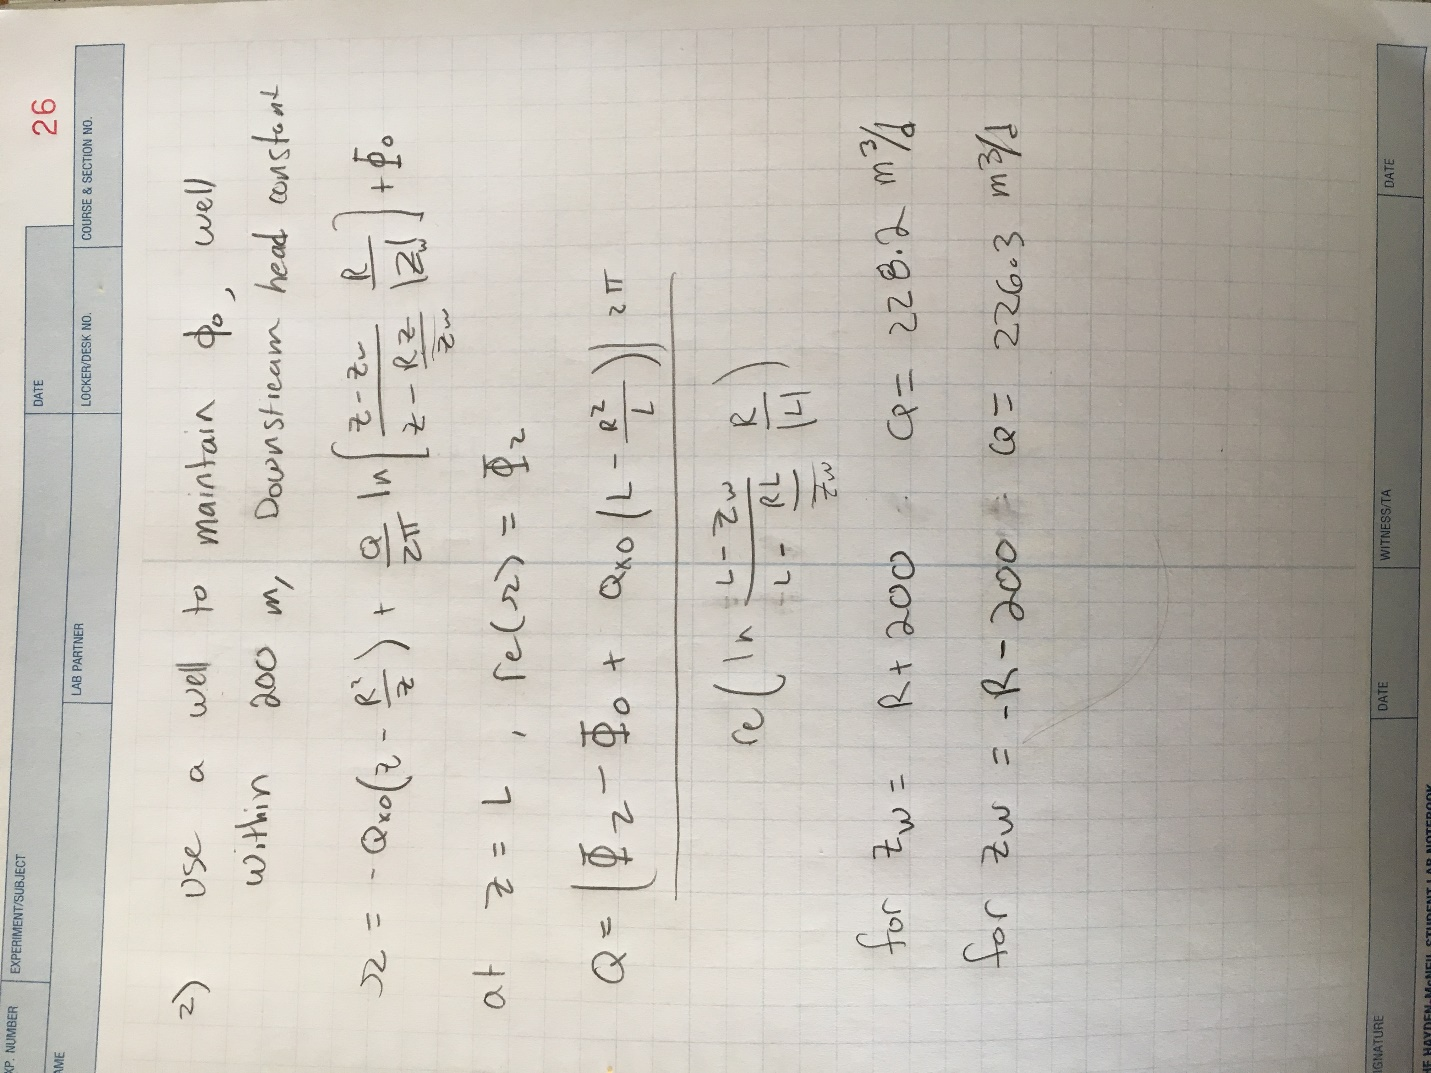 EXP. NUMBER EXPERIMENT/SUBJECT DATE 26
NAME LAB PARTNER LOCKER/DESK NO. COURSE & SECTION NO.
2) Use a well to maintain ϕ₀, well
within 200 m, Downstream head constant
Ω = -Qₓ₀(z - R²/z) + Q/2π ln[(z-z_w)/(z - Rz/z_w) R/|z_w|] + Φ₀
at z = L, re(Ω) = Φ₂
Q = [Φ₂ - Φ₀ + Qₓ₀(L - R²/L)] 2π
re(ln (L-z_w)/(L - RL/z_w) R/|L|)
for z_w = R+200 Q = 228.2 m³/d
for z_w = -R-200 Q = 226.3 m³/d
SIGNATURE DATE WITNESS/TA DATE
THE HAYDEN-McNEIL STUDENT LAB NOTEBOOK